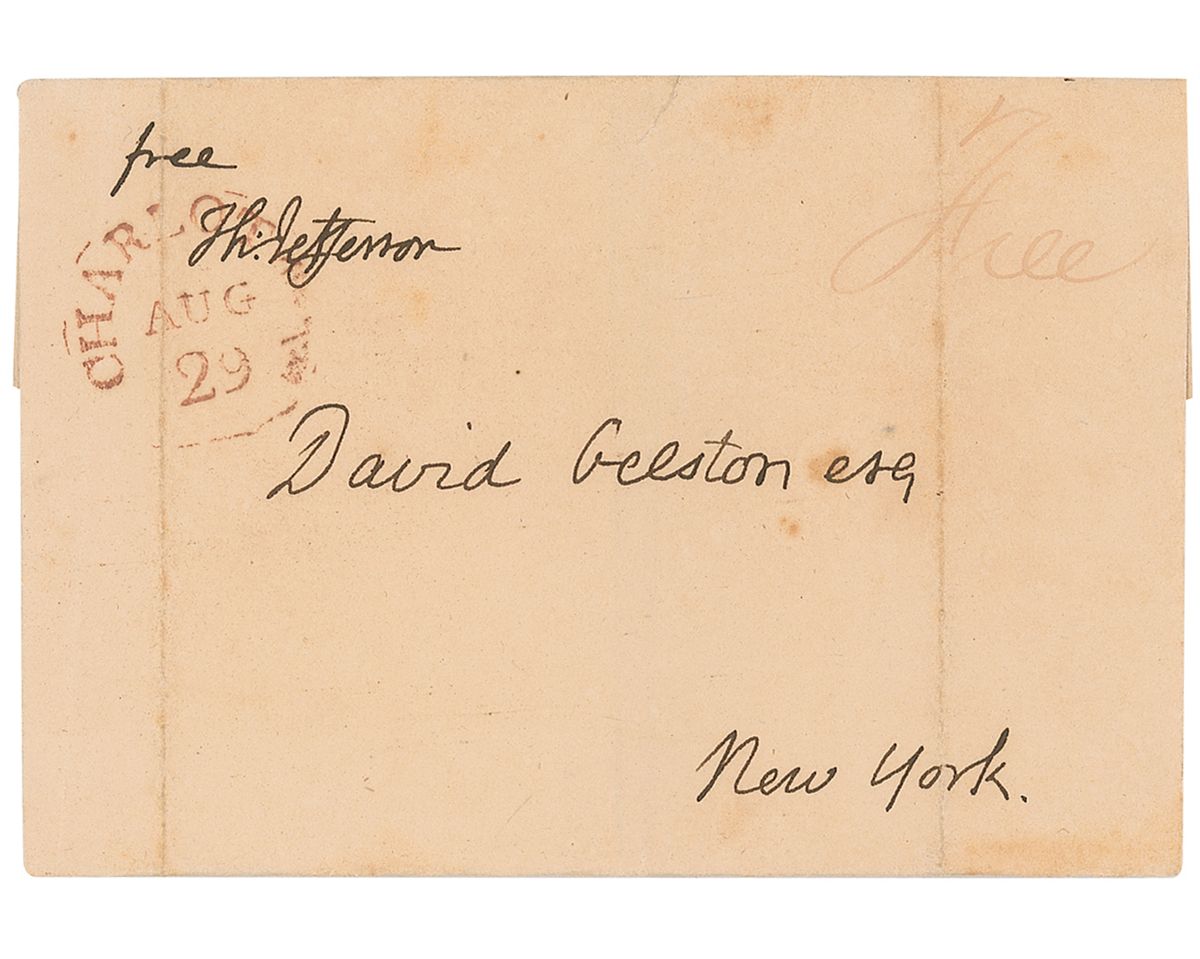 free
Free
Th: Jefferson
AUG
29
David Gelston esq
New York.